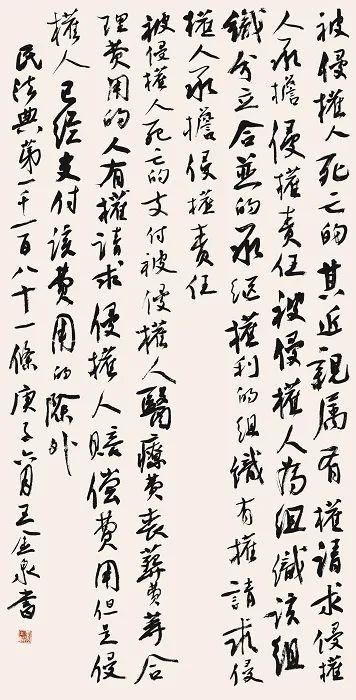 被侵權人死亡的其近親属有權請求侵權
人承擔侵權责任被侵權人為组織该组
織分立合並的承继權利的组織有權請求侵
權人承擔侵權责任
被侵權人死亡的支付被侵權人醫療費丧葬費等合
理費用的人有權請求侵權人賠偿費用但是侵
權人已经支付该費用的除外
民法典第一千一百八十一條庚子六月王金泉書